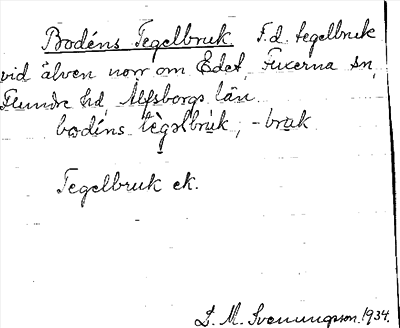 Bodéns Tegelbruk. F.d. tegelbruk
vid älven norr om Edet, Fuxerna sn,
Flundre hd, Älfsborgs län.
bodéns tègəlbrùk, -bruk
Tegelbruk ek.
L. M. Svenungsson. 1934.